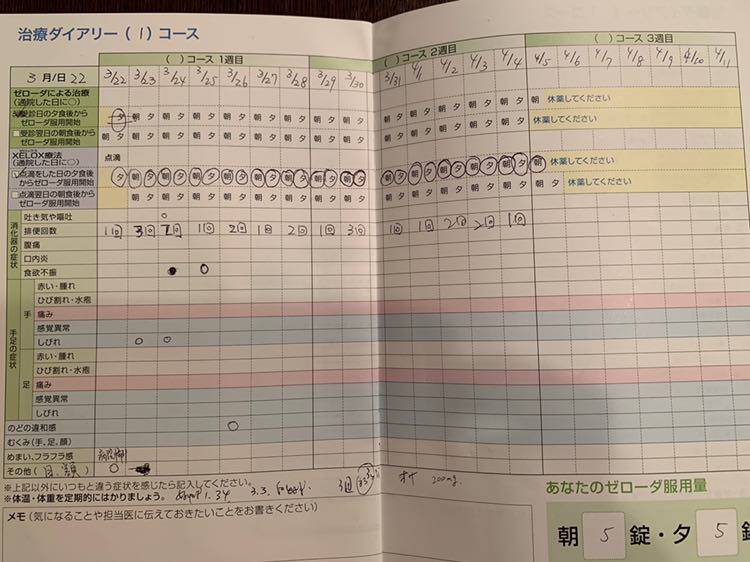 治療ダイアリー(1)コース
( )コース 1週目
( )コース 2週目
( )コース 3週目
3月/日 22 3/22 3/23 3/24 3/25 3/26 3/27 3/28 3/29 3/30 3/31 4/1 4/2 4/3 4/4 4/5 4/6 4/7 4/8 4/9 4/10 4/11
ゼローダによる治療
(通院した日に○)
受診日の夕食後から
ゼローダ服用開始
夕 朝 夕 朝 夕 朝 夕 朝 夕 朝 夕 朝 夕 朝 夕 朝 夕 朝 夕 朝 夕 朝 夕 朝 夕 朝 夕 朝 休薬してください
受診翌日の朝食後から
ゼローダ服用開始
朝 夕 朝 夕 朝 夕 朝 夕 朝 夕 朝 夕 朝 夕 朝 夕 朝 夕 朝 夕 朝 夕 朝 夕 朝 夕 朝 夕 休薬してください
XELOX療法
(通院した日に○)
点滴
点滴をした日の夕食後
からゼローダ服用開始
夕 朝 夕 朝 夕 朝 夕 朝 夕 朝 夕 朝 夕 朝 夕 朝 夕 朝 夕 朝 夕 朝 夕 朝 夕 朝 夕 朝 休薬してください
点滴翌日の朝食後から
ゼローダ服用開始
朝 夕 朝 夕 朝 夕 朝 夕 朝 夕 朝 夕 朝 夕 朝 夕 朝 夕 朝 夕 朝 夕 朝 夕 朝 夕 朝 夕 休薬してください
消化器の症状
吐き気や嘔吐
排便回数 1回 3回 1回 2回 1回 2回 1回 3回 1回 1回 2回 2回 1回
腹痛
口内炎
食欲不振
手足の症状
手
赤い・腫れ
ひび割れ・水疱
痛み
感覚異常
しびれ
足
赤い・腫れ
ひび割れ・水疱
痛み
感覚異常
しびれ
のどの違和感
むくみ(手、足、顔)
めまい、フラフラ感
その他(
※上記以外にいつもと違う症状を感じたら記入してください。
※体温・体重を定期的にはかりましょう。
1.34
3回
200mg.
メモ(気になることや担当医に伝えておきたいことをお書きください)
あなたのゼローダ服用量
朝 5 錠・夕 5 錠